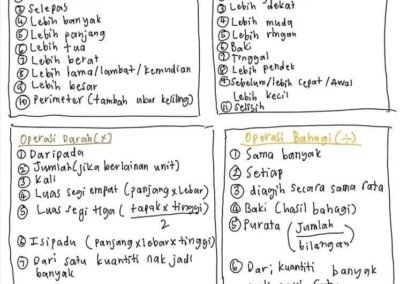 ③ Selepas
④ Lebih banyak
⑤ Lebih panjang
⑥ Lebih tua
⑦ Lebih berat
⑧ Lebih lama/lambat/kemudian
⑨ Lebih besar
⑩ Perimeter (tambah ukur keliling)
③ Lebih dekat
④ Lebih muda
⑤ Lebih ringan
⑥ Baki
⑦ Tinggal
⑧ Lebih pendek
⑨ Sebelum/lebih cepat/Awal
Lebih kecil
⑪ Selisih
Operasi Darab (×)
① Daripada
② Jumlah (jika berlainan unit)
③ Kali
④ Luas segi empat (panjang x lebar)
⑤ Luas segi tiga (tapak x tinggi)
2
⑥ Isipadu (panjang x lebar x tinggi)
⑦ Dari satu kuantiti nak jadi
banyak
Operasi Bahagi (÷)
① Sama banyak
② Setiap
③ diagih secara sama rata
④ Baki (hasil bahagi)
⑤ Purata (Jumlah)
bilangan
⑥ Dari kuantiti banyak